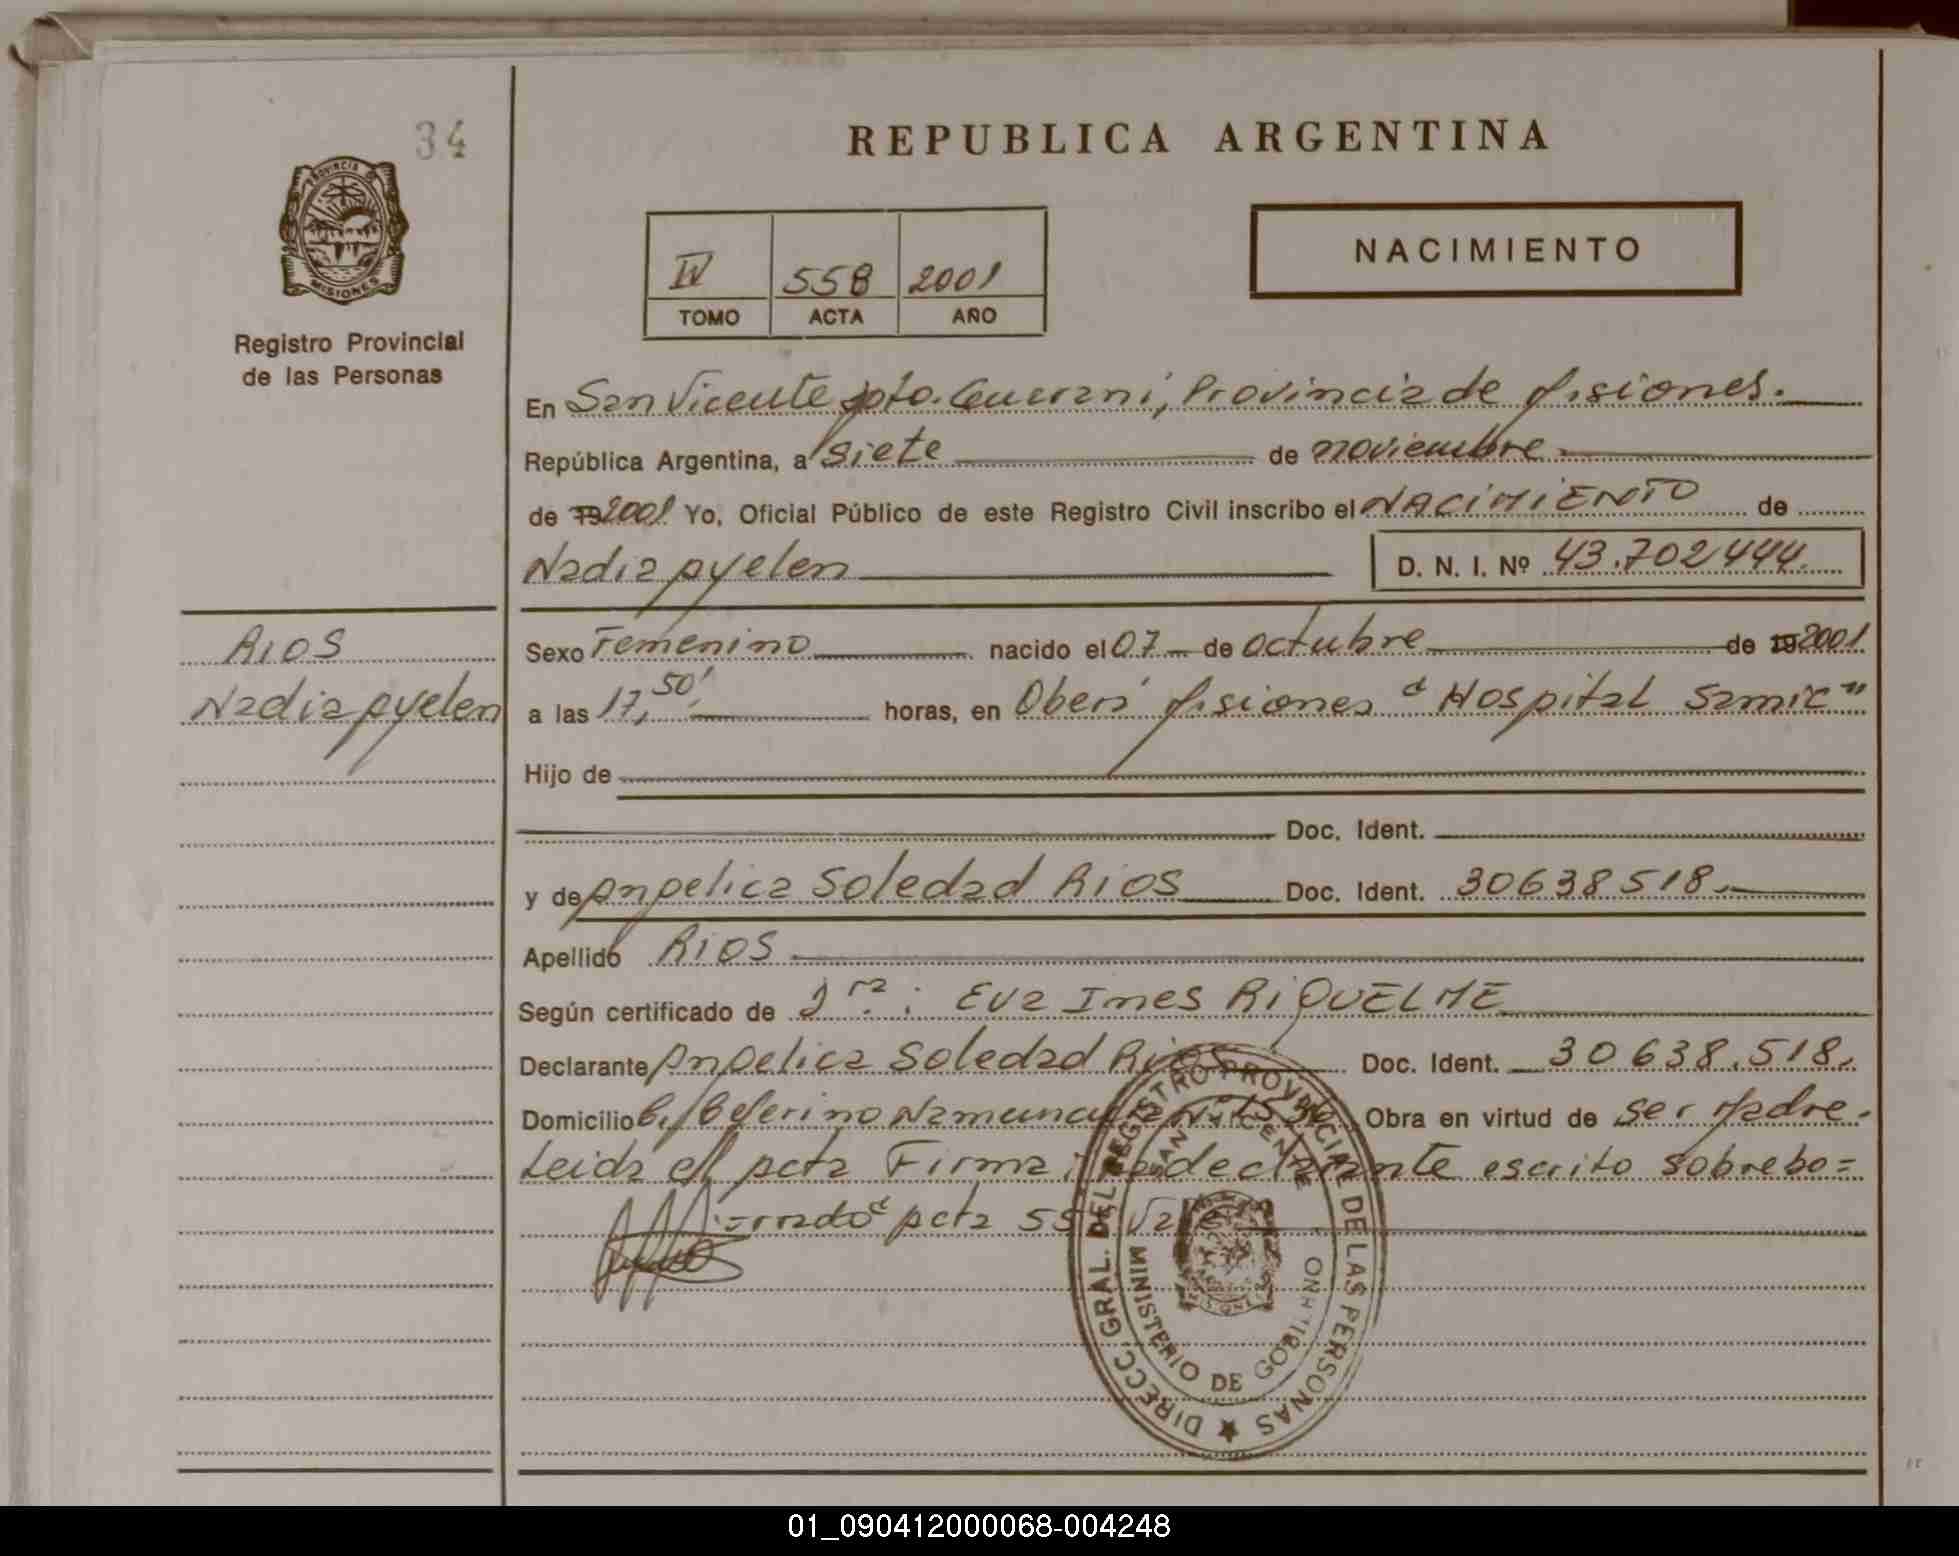 34
PROVINCIA DE
MISIONES
Registro Provincial
de las Personas
RIOS
Nadia Ayelen
REPUBLICA ARGENTINA
IV 558 2001
TOMO ACTA AÑO
NACIMIENTO
En San Vicente Dpto. Guarani, Provincia de Misiones.
República Argentina, a siete de noviembre
de 19 2001 Yo, Oficial Público de este Registro Civil inscribo el NACIMIENTO de
Nadia Ayelen D. N. I. Nº 43.702444.
Sexo Femenino nacido el 07 de octubre de 19 2001
a las 17,50' horas, en Oberá Misiones "Hospital Samic"
Hijo de
Doc. Ident.
y de Angelica Soledad Rios Doc. Ident. 30638518.
Apellido RIOS
Según certificado de Dra.: Eva Ines RIQUELME
Declarante Angelica Soledad Rios Doc. Ident. 30638.518.
Domicilio Ceferino Obra en virtud de ser Madre.
Leida el acta Firma declarante escrito sobrebo=
rrado acta
DIRECC. GRAL. DEL REGISTRO PROVINCIAL DE LAS PERSONAS
SAN VICENTE
MINISTERIO DE GOBIERNO
MISIONES
01_090412000068-004248